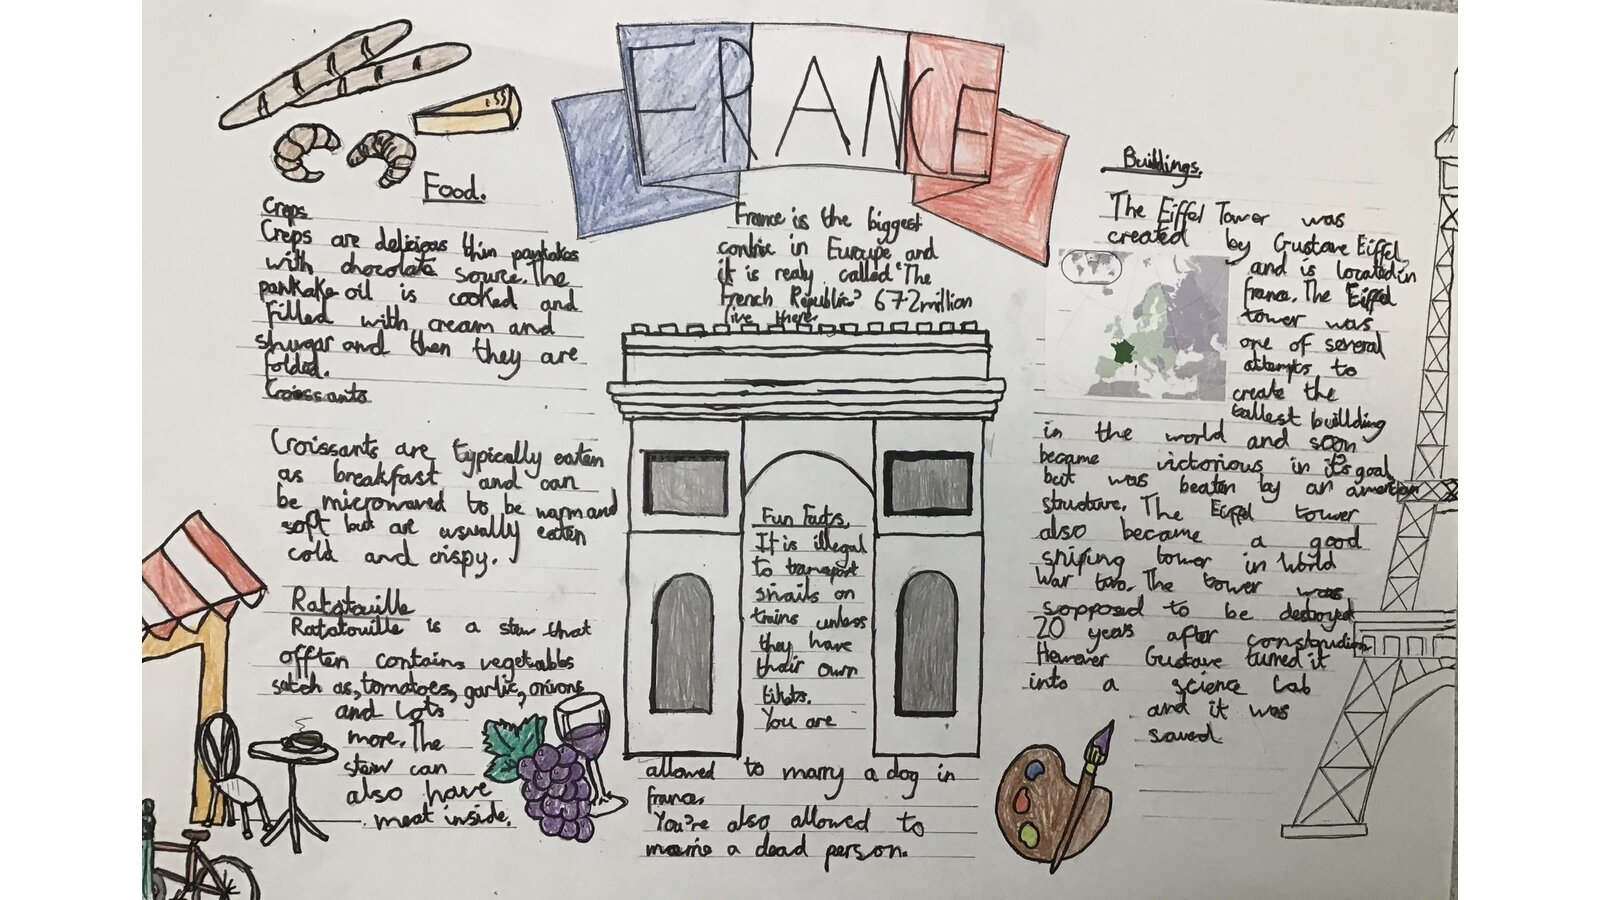 FRANCE
Food.
Creps
Creps are delicious thin pankakes
with chocolate source. The
pankake oil is cooked and
filled with cream and
shugar and then they are
folded.
Croissants
Croissants are typically eaten
as breakfast and can
be microwaved to be warm and
soft but are usually eaten
cold and crispy.
Ratatouille
Ratatouille is a stew that
offten contains vegetables
sutch as, tomatoes, garlic, onions
and lots
more. The
stew can
also have
meat inside.
France is the biggest
contrie in Europe and
it is realy called "The
French Republic" 67.2 million
live there.
Fun Facts.
It is illegal
to transport
snails on
trains unless
they have
their own
tikets.
You are
allowed to marry a dog in
france.
You're also allowed to
marrie a dead person.
Buildings.
The Eiffel Tower was
created by Gustave Eiffel,
and is located in
france. The Eiffel
tower was
one of several
attempts to
create the
tallest buillding
in the world and soon
became victorious in it's goal
but was beaten by an american
structure. The Eiffel tower
also became a good
sniping tower in World
War two. The tower was
sopposed to be destroyed
20 years after construdion
However Gustave turned it
into a science lab
and it was
saved